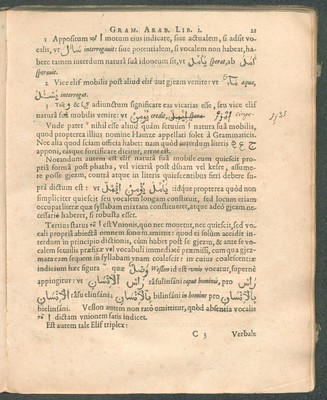 GRAM. ARAB. LIB. I. 21
1 Appositum ا motum eius indicate, siue actualem, si adsit vo-
calis, vt سَأَلَ interrogauit: siue potentialem, si vocalem non habeat, ha-
bere tamen interdum naturâ suâ idoneum sit, vt يَأْمُلُ sperat, ab أَمَلَ
sperauit.
2 Vice elif mobilis post aliud elif aut gjezm venire: vt مَآءٌ aqua,
interroget.
adiunctum significare ea vicarias esse, seu vice elif
naturâ suâ mobilis venire: vt يُؤْمِنُ credit,
Vnde patet nihil esse aliud quàm serium ا naturâ suâ mobile,
quod propterea illius nomine Hamze appellari solet à Grammaticis.
Nec alia quod sciam officia habet: nam quòd interdum literis ح ع غ
apponi, easque fortificare dicitur, error est.
Notandum autem est elif naturâ suâ mobile cum quiescit pro-
priâ formâ post phatha, vel vicariâ post dsjam vel kesre, assume-
re posse gjezm, contrà atque in literis quiescentibus fieri debere su-
prà dictum est: vt يَأْمَلُ يُؤْمِنُ إِئْمَلْ idque propterea quòd non
simpliciter quiescit seu vocalem longam constituit, sed locum etiam
occupat literæ quæ syllabam mixtam constitueret, atque adeò gjezm ne-
cessariò haberet, si robusta esset.
Tertius status ا est Vnionis, quo nec mouetur, nec quiescit, sed vo-
cali propriâ abiectâ omnem sonum amittit: quod ei solùm accidit in-
terdum in principio dictionis, cùm habet post se gjezm, & ante se vo-
calem seruilis præfixi vel vocabuli immediatè præmissi, cum quâ gjez-
mata eam sequens in syllabam vnam coalescit: in cuius coalescentiæ
indicium hæc figura quæ وَصْل Wesson id est vnio vocatur, supernè
appingitur: vt رَاسُ ٱلْإِنْسَانِ râsulinsâni caput hominis, pro رَاسُ
اَلْإِنْسَانِ râsu elinsâni: بِٱلْإِنْسَانِ bilinsâni in homine pro بِاَلْإِنْسَانِ
bielinsâni. Vesson autem non rarò omittitur, quòd absentia vocalis
ا dictam vnionem satis indicet.
Est autem tale Elif triplex:
C 3 Verbale